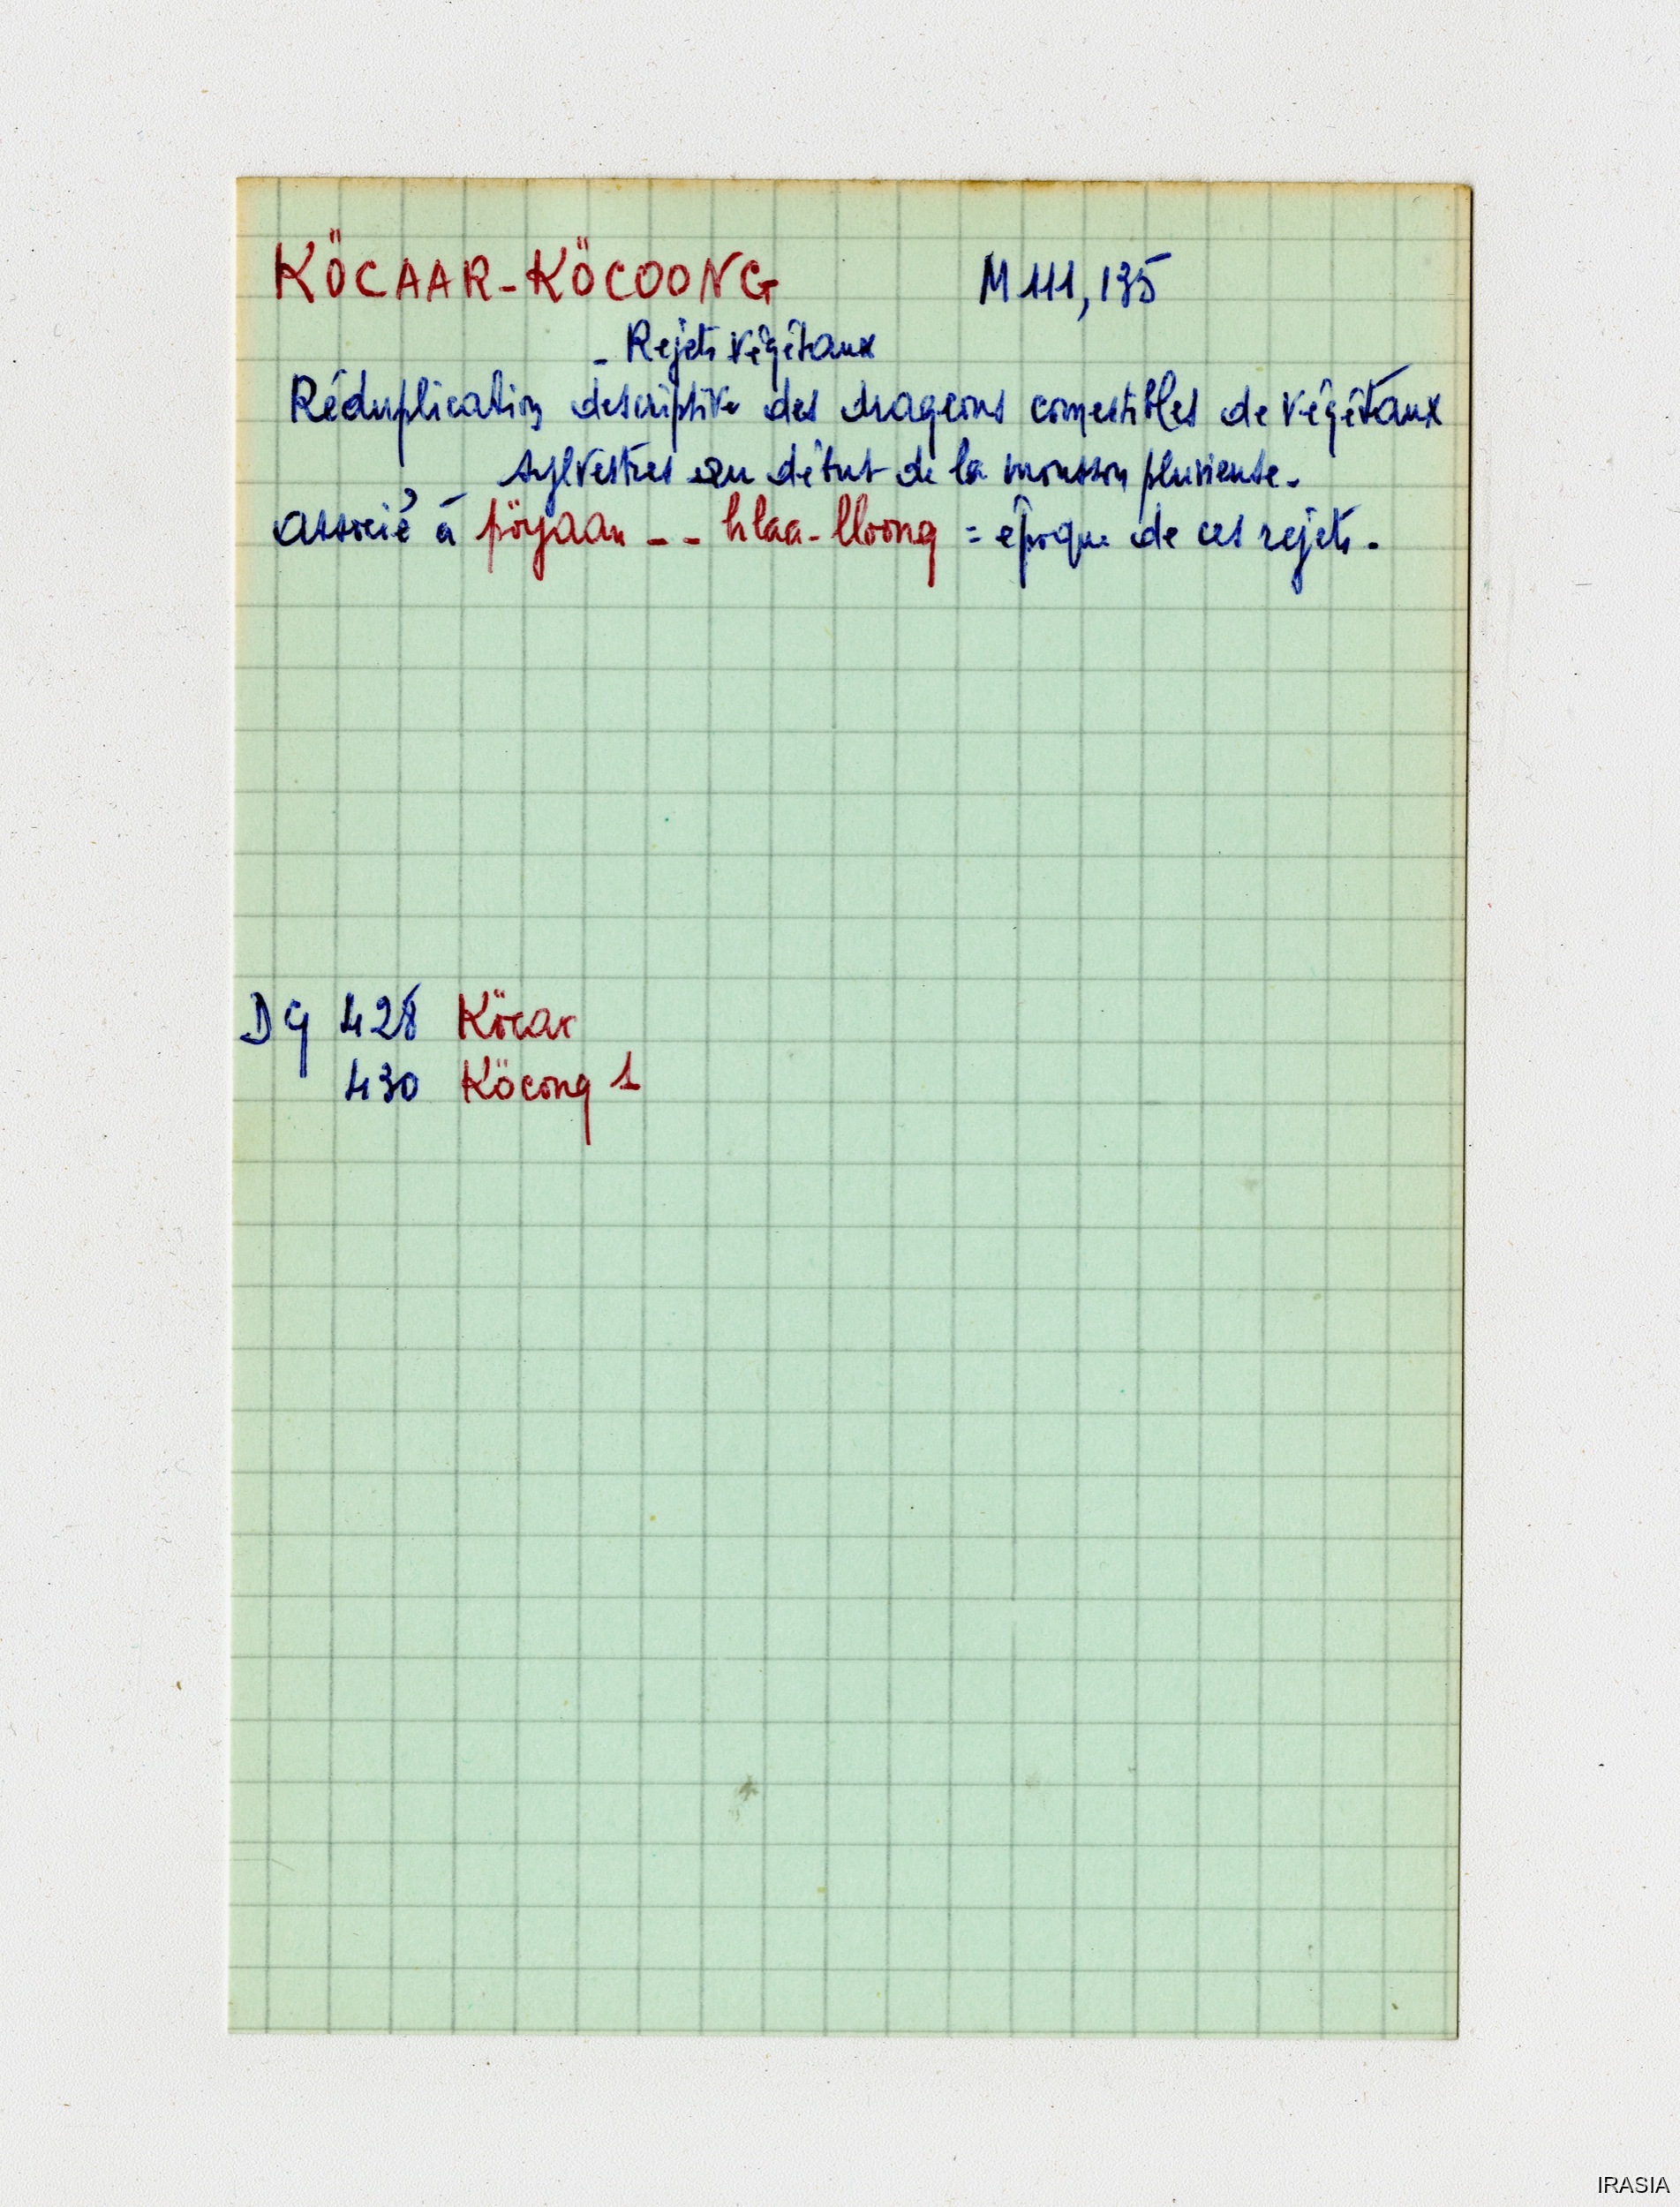 KÖCAAR-KÖCOONG M 111, 135
- Rejets végétaux
Réduplication descriptive des drageons comestibles de végétaux
sylvestres au début de la mousson pluvieuse.
associé à pöyaan -- hlaa-lloong = époque de ces rejets.
DG 428 Köcar
430 Köcong 1
IRASIA